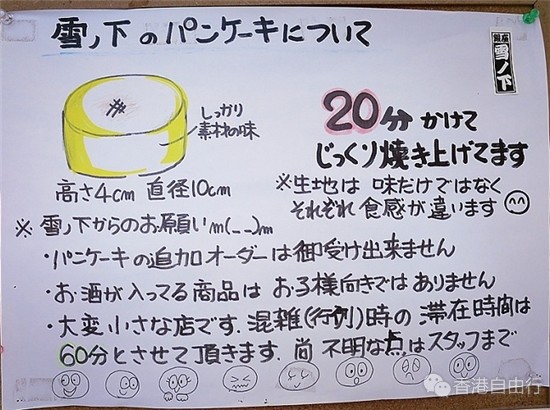 雪ノ下のパンケーキについて
銀座 雪ノ下
しっかり
素材の味
高さ4cm 直径10cm
20分かけて
じっくり焼き上げてます
※生地は 味だけではなく
それぞれ食感が違います
※ 雪ノ下からのお願いm(__)m
・パンケーキの追加オーダーは御受け出来ません
・お酒が入ってる商品は お子様向きでは ありません
・大変小さな店です.混雑(行列)時の 滞在時間は
60分とさせて頂きます.尚 不明な点はスタッフまで
香港自由行